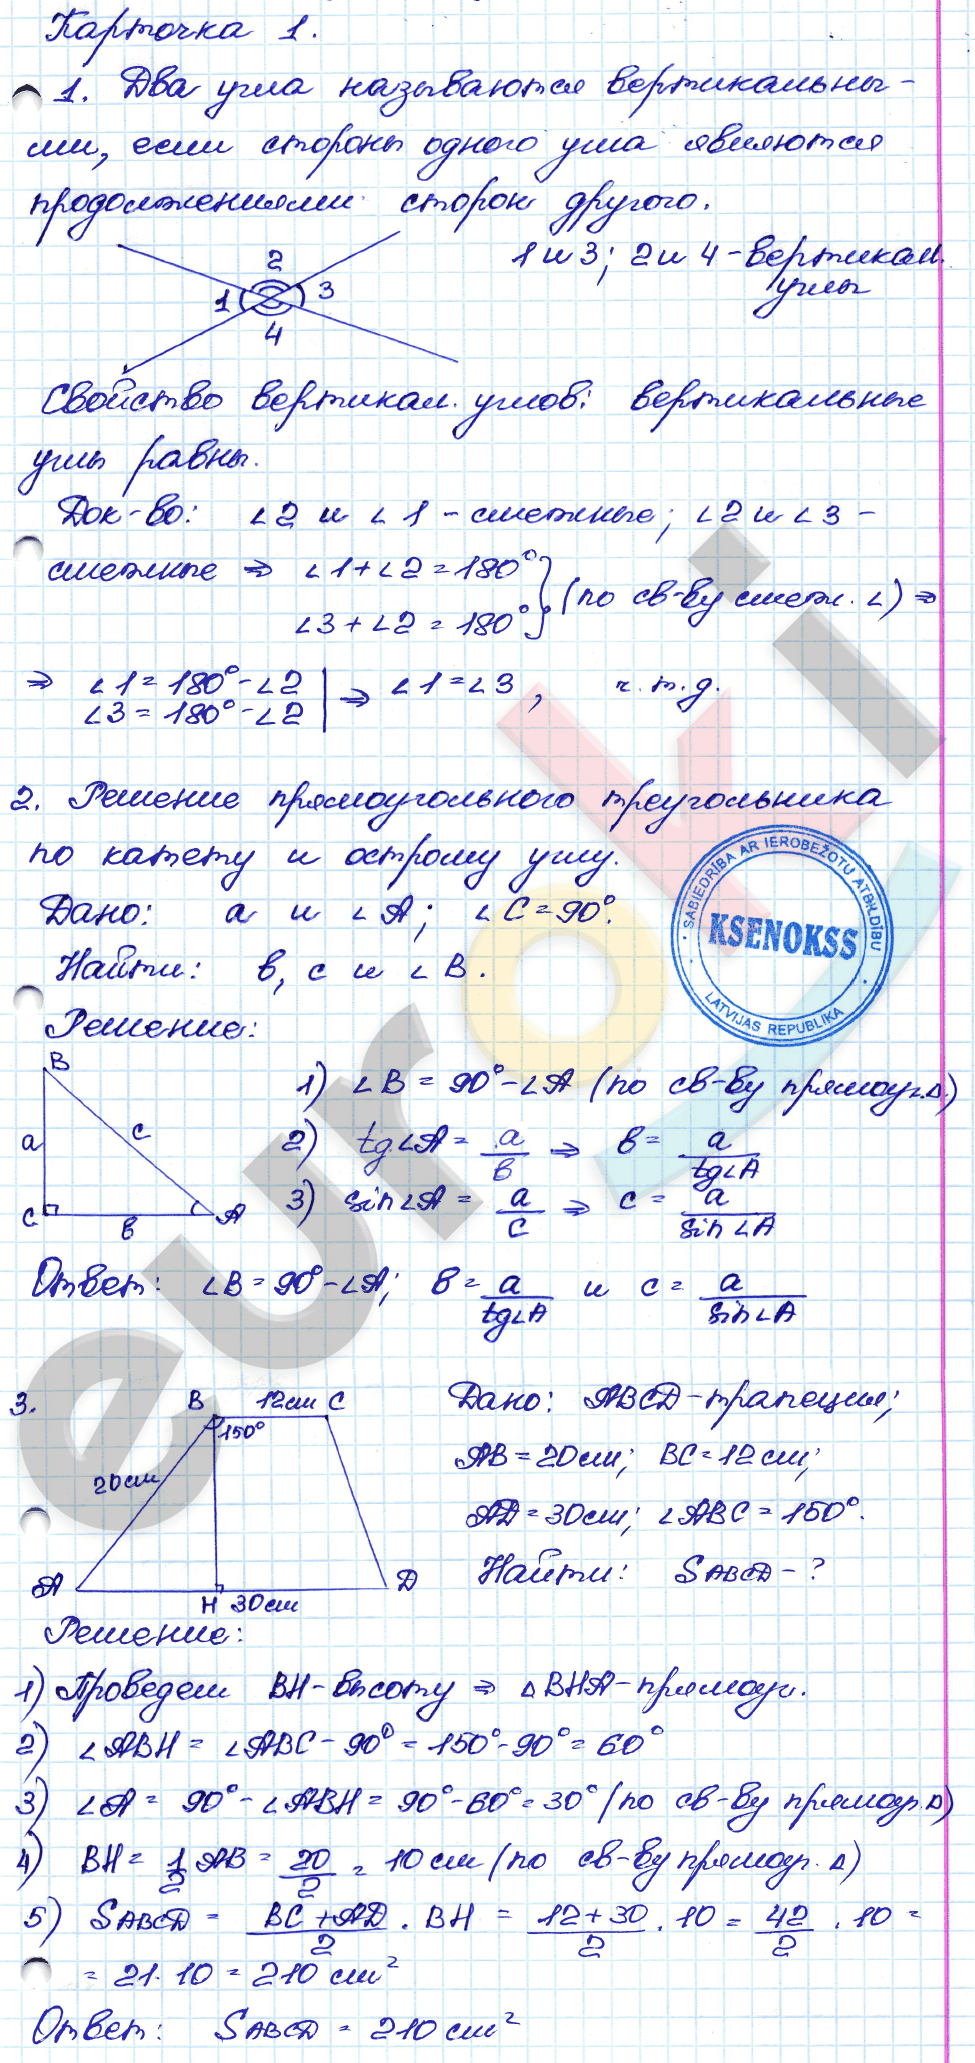 Карточка 1.
1. Два угла называются вертикальны-
ми, если стороны одного угла являются
продолжениями сторон другого.
1 и 3; 2 и 4 - вертикал.
углы
2
1 3
4
Свойство вертикал. углов: вертикальные
углы равны.
Док-во: ∠2 и ∠1 - смежные; ∠2 и ∠3 -
смежные ⇒ ∠1+∠2=180°
∠3+∠2=180° } (по св-ву смеж. ∠) ⇒
⇒ ∠1=180°-∠2
∠3=180°-∠2 | ⇒ ∠1=∠3, ч.т.д.
2. Решение прямоугольного треугольника
по катету и острому углу.
Дано: a и ∠A; ∠C=90°.
Найти: в, с и ∠B.
Решение:
B
a c
C в A
1) ∠B = 90°-∠A (по св-ву прямоуг.Δ)
2) tg∠A = a/в ⇒ в = a/tg∠A
3) sin∠A = a/c ⇒ c = a/sin∠A
Ответ: ∠B=90°-∠A; в=a/tg∠A и c=a/sin∠A
SABIEDRĪBA AR IEROBEŽOTU ATBILDĪBU
KSENOKSS
LATVIJAS REPUBLIKA
euroki
3.
B 12см C
150°
20см
A D
H 30см
Дано: ABCD - трапеция;
AB=20см; BC=12см;
AD=30см; ∠ABC=150°.
Найти: SABCD - ?
Решение:
1) Проведем BH-высоту ⇒ ΔBHA-прямоуг.
2) ∠ABH = ∠ABC - 90° = 150°-90° = 60°
3) ∠A = 90°-∠ABH = 90°-60°=30° (по св-ву прямоуг.Δ)
4) BH = 1/2 AB = 20/2 = 10 см (по св-ву прямоуг. Δ)
5) SABCD = BC+AD/2 · BH = 12+30/2 · 10 = 42/2 · 10 =
= 21·10 = 210 см²
Ответ: SABCD = 210 см²